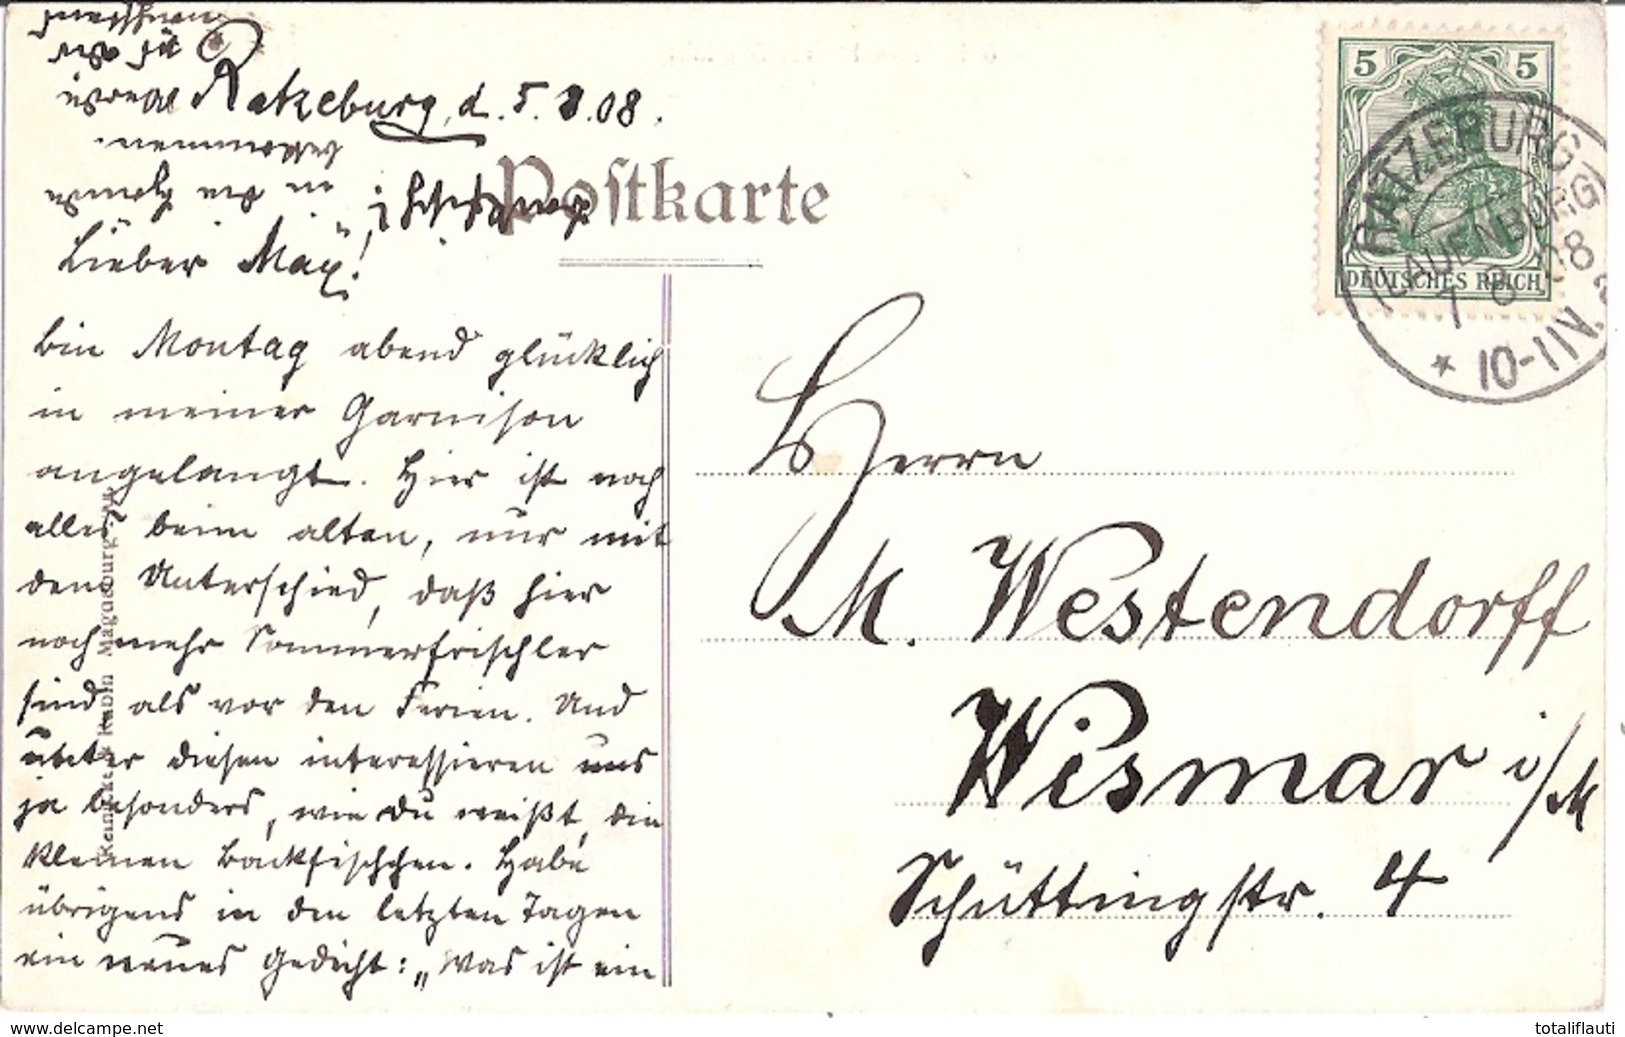 Ratzeburg, d. 5. 8. 08.
Postkarte
Lieber Max!
bin Montag abend glücklich
in meiner Garnison
angelangt. Hier ist noch
alles beim alten, nur mit
dem Unterschied, daß hier
noch mehr Sommerfrischler
sind als vor den Ferien. Und
über diesen interessieren uns
ja besonders, wie du weißt, die
kleinen Backfischchen. Habe
übrigens in den letzten Tagen
ein neues Gedicht: „Was ist ein
Reinicke & Rubin Magdeburg
5 5
DEUTSCHES REICH
RATZEBURG
(LAUENBURG)
7 8 08
* 10-11V.
Herrn
M. Westendorff
Wismar i/M
Schüttingstr. 4
delcampe.net
totaliflauti